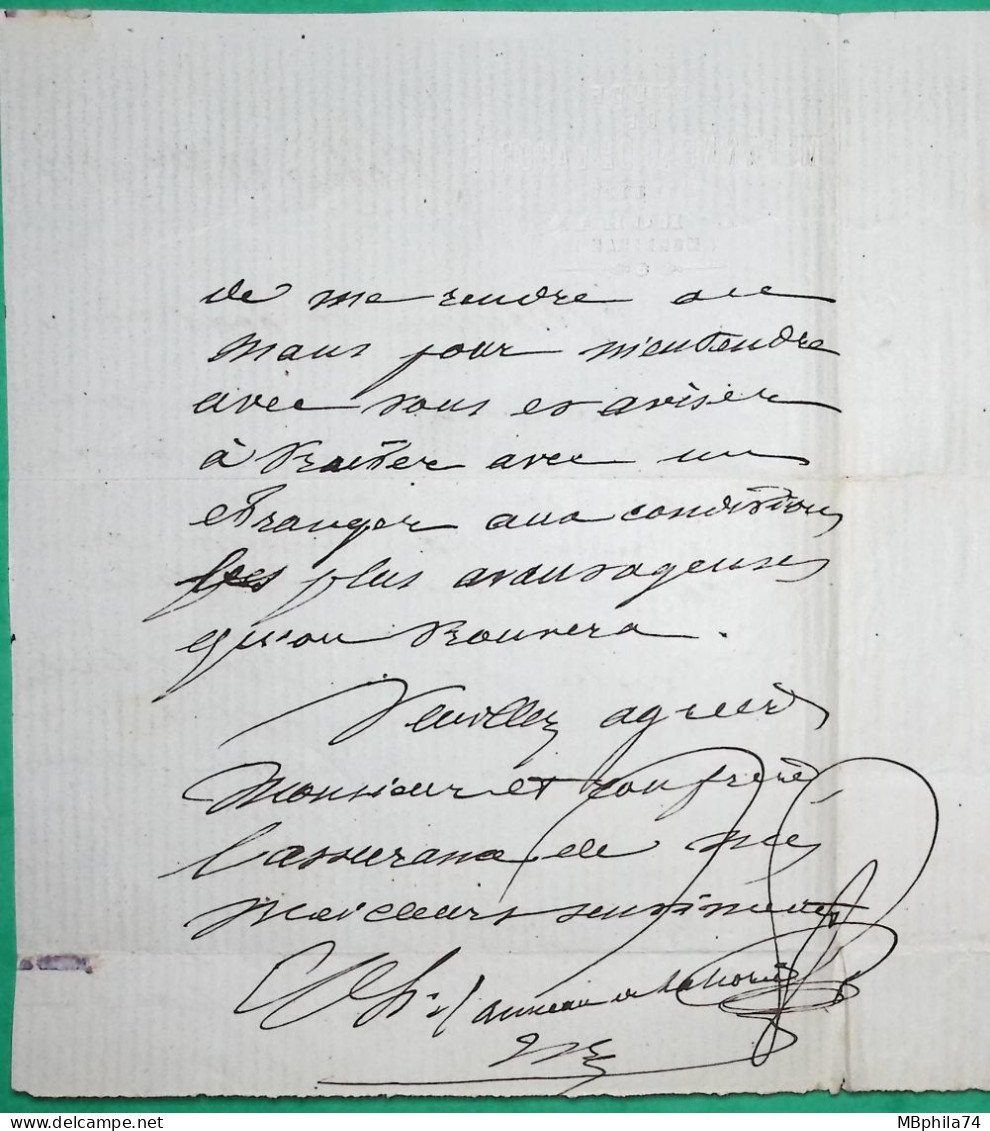 de me rendre au
mans pour m'entendre
avec vous et aviser
à traiter avec un
étranger aux conditions
les plus avantageuses
qu'on trouvera.
Veuillez agréer
Monsieur et confrère
l'assurance de mes
meilleurs sentiments
MBphila74